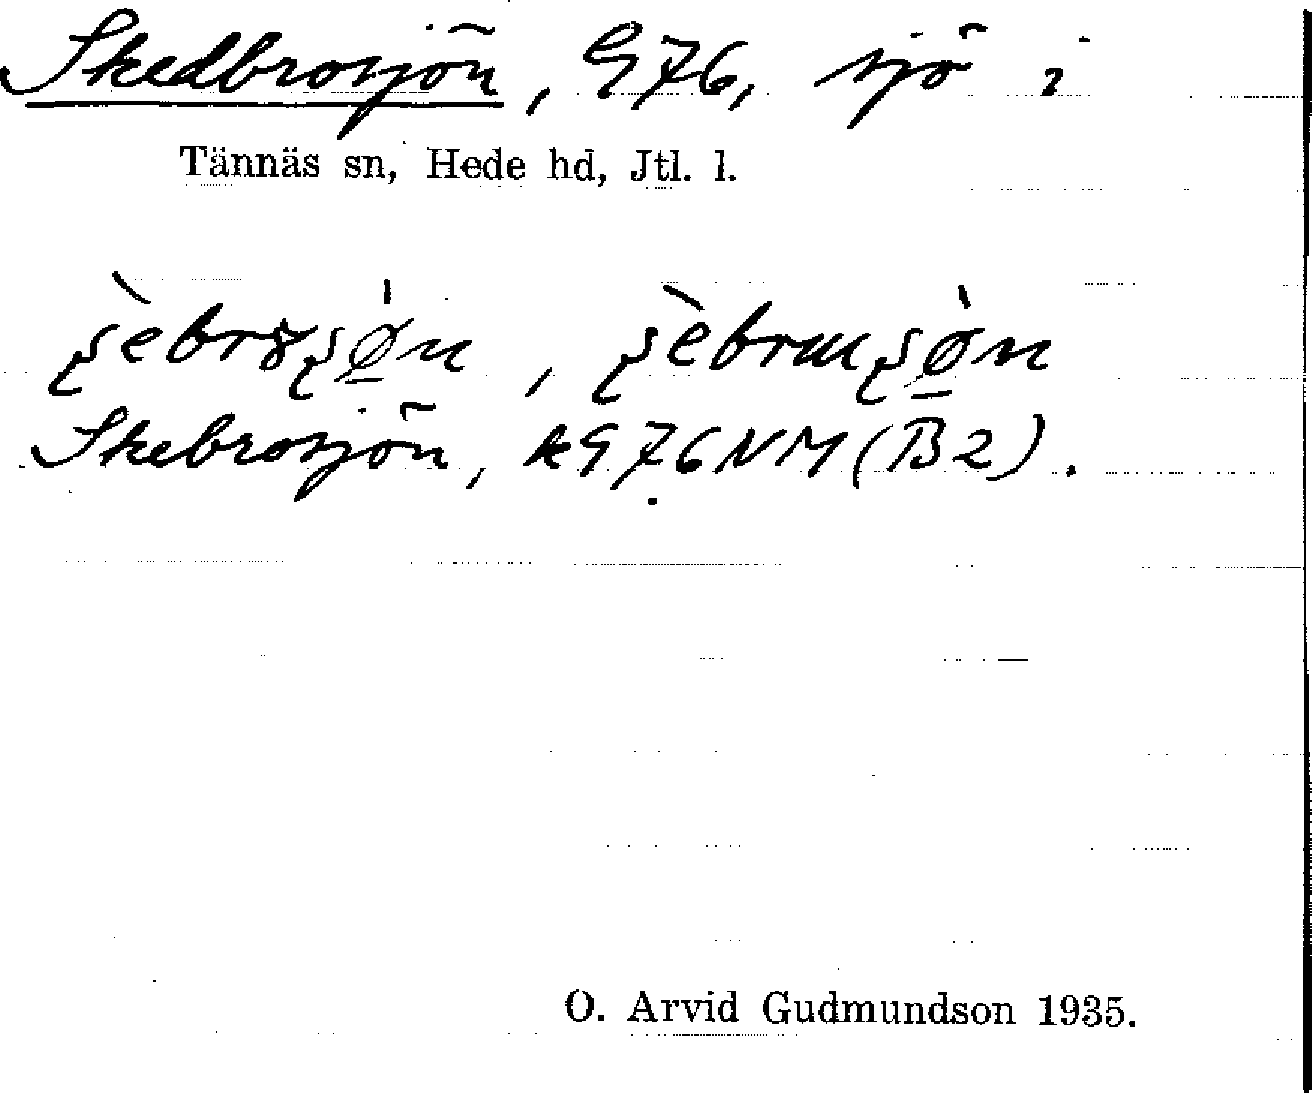 Skedbrosjön, G76, sjö i
Tännäs sn, Hede hd, Jtl. l.
Skebrosjön, kG76NM(B2).
O. Arvid Gudmundson 1935.